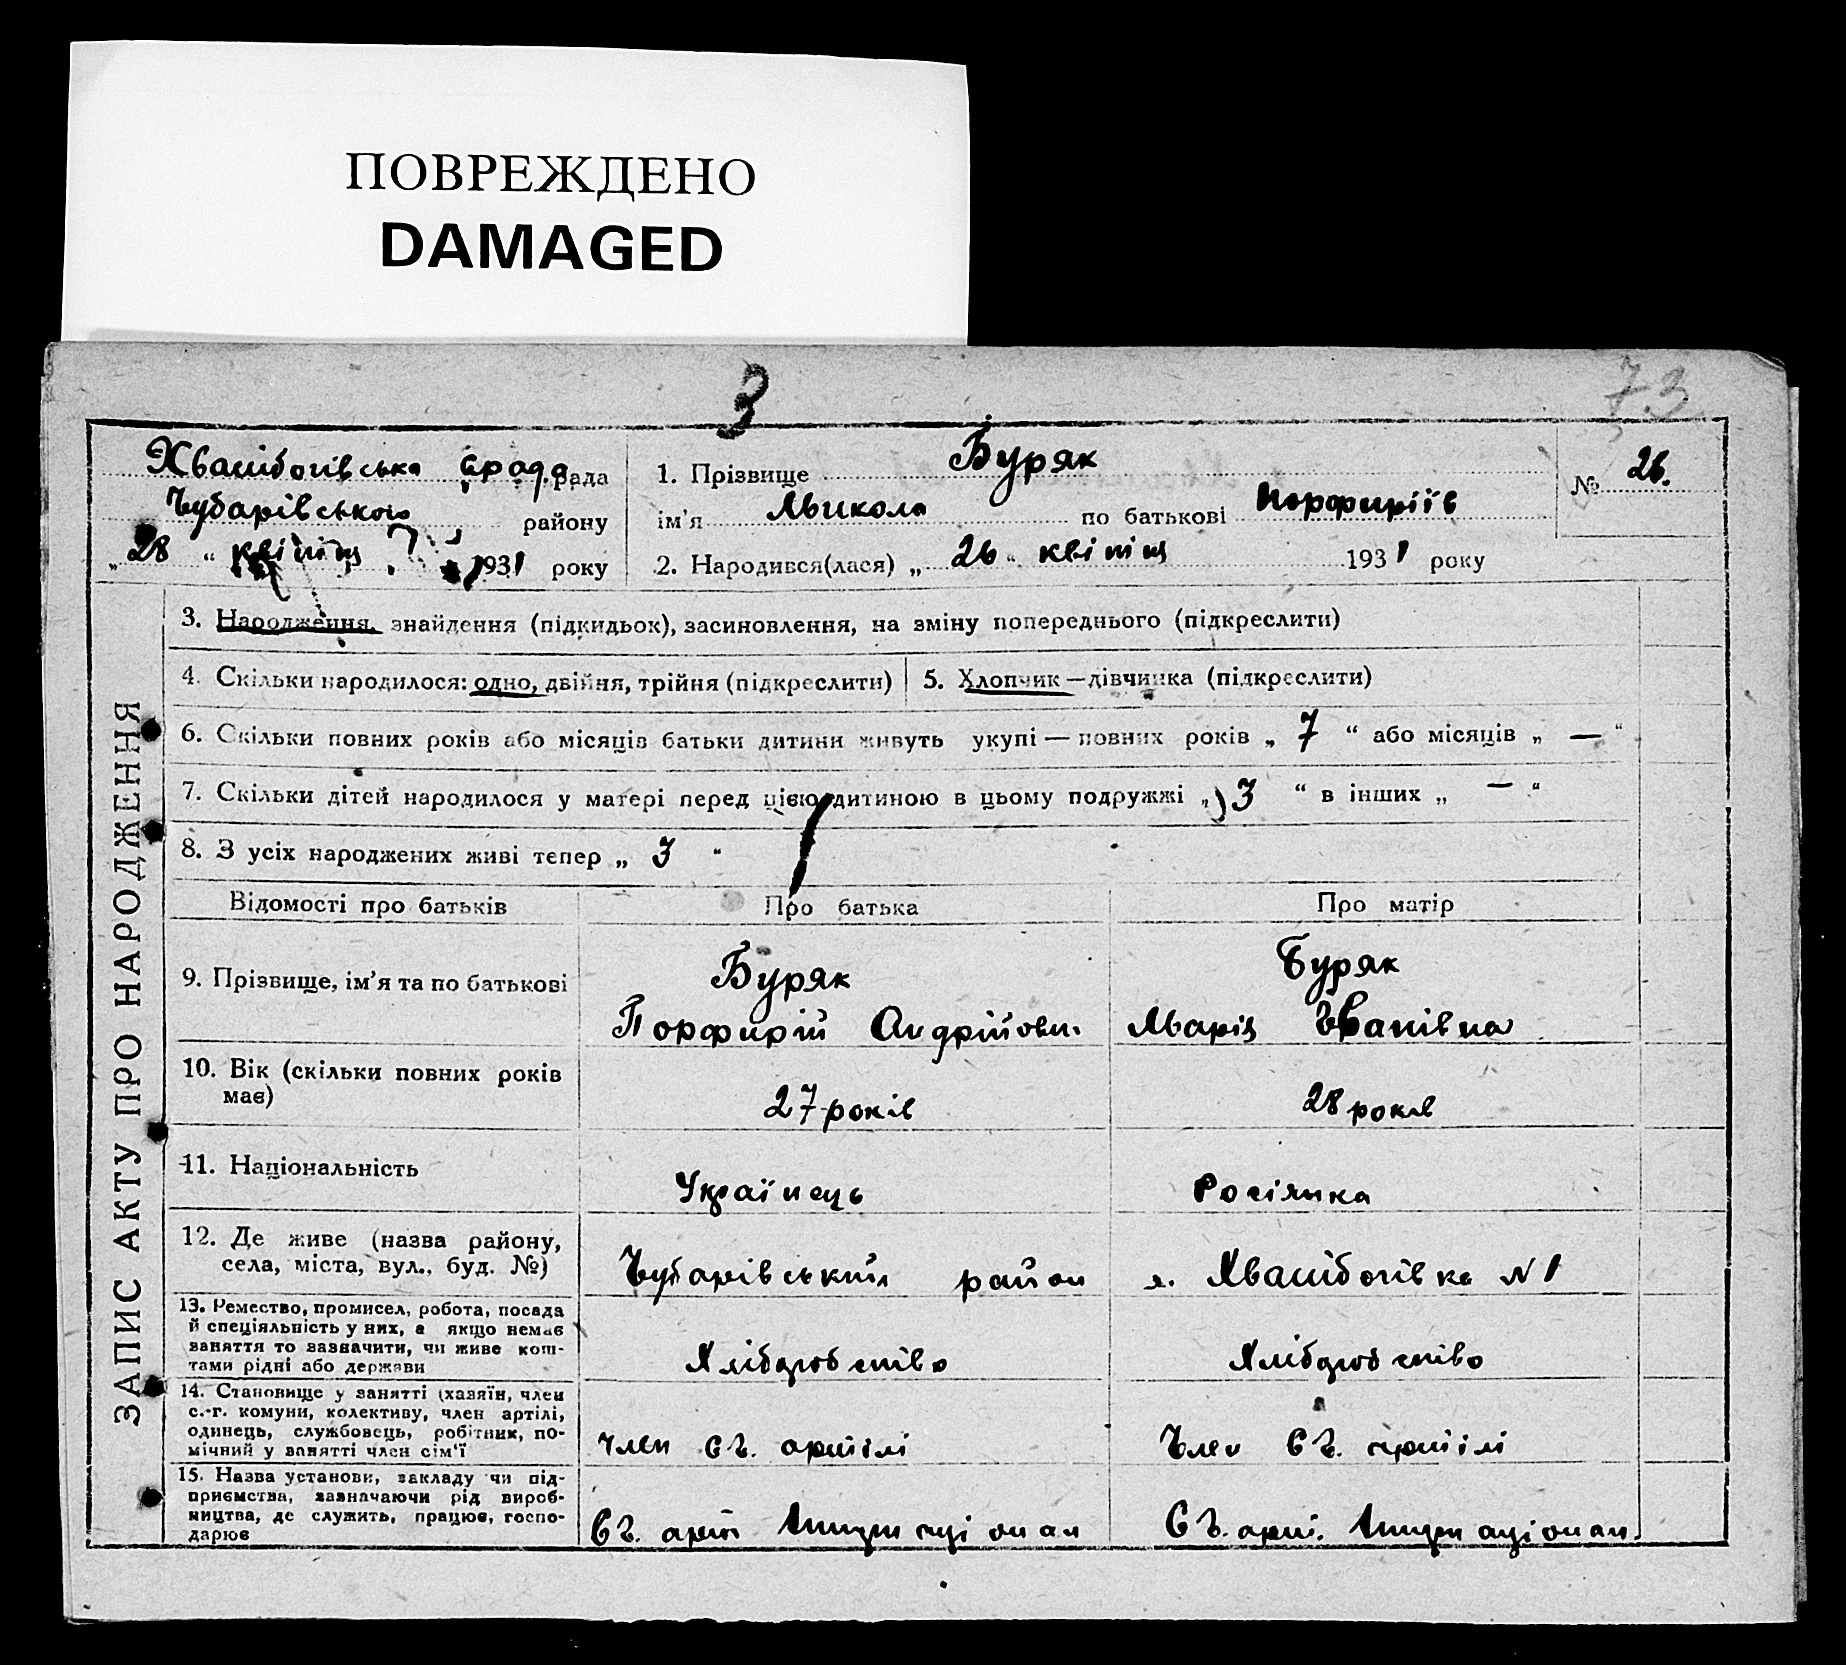 ПОВРЕЖДЕНО
DAMAGED
3
73
Хвалібогівська срада рада
Чубарівського району
„28“ квітня 1931 року
1. Прізвище Буряк
ім’я Микола по батькові Порфиріїв
2. Народився(лася) „26“ квітня 1931 року
№ 26.
ЗАПИС АКТУ ПРО НАРОДЖЕННЯ
3. Народження, знайдення (підкидьок), засиновлення, на зміну попереднього (підкреслити)
4. Скільки народилося: одно, двійня, трійня (підкреслити)
5. Хлопчик—дівчинка (підкреслити)
6. Скільки повних років або місяців батьки дитини живуть укупі — повних років „ 7 “ або місяців „ — “
7. Скільки дітей народилося у матері перед цією дитиною в цьому подружжі „ 3 “ в інших „ — “
8. З усіх народжених живі тепер „ 3 “
Відомості про батьків Про батька Про матір
9. Прізвище, ім’я та по батькові
Буряк
Порфирій Андрійови.
Буряк
Марія Іванівна
10. Вік (скільки повних років
має)
27 років
28 років
11. Національність
Українець
Росіянка
12. Де живе (назва району,
села, міста, вул., буд. №)
Чубарівський район с. Хвалібогівка N 1
13. Ремество, промисел, робота, посада
й спеціяльність у них, а якщо немає
заняття то зазначити, чи живе кош-
тами рідні або держави
Хліборобство
Хліборобство
14. Становище у занятті (хазяїн, член
с.-г. комуни, колективу, член артілі,
одинець, службовець, робітник, по-
мічний у занятті член сім’ї
член СГ. артілі
Член СГ. артілі
15. Назва установи, закладу чи під-
приємства, зазначаючи рід вироб-
ництва, де служить, працює, госпо-
дарює
СГ. арт Інтернаціонал
СГ. арт. Інтернаціонал.